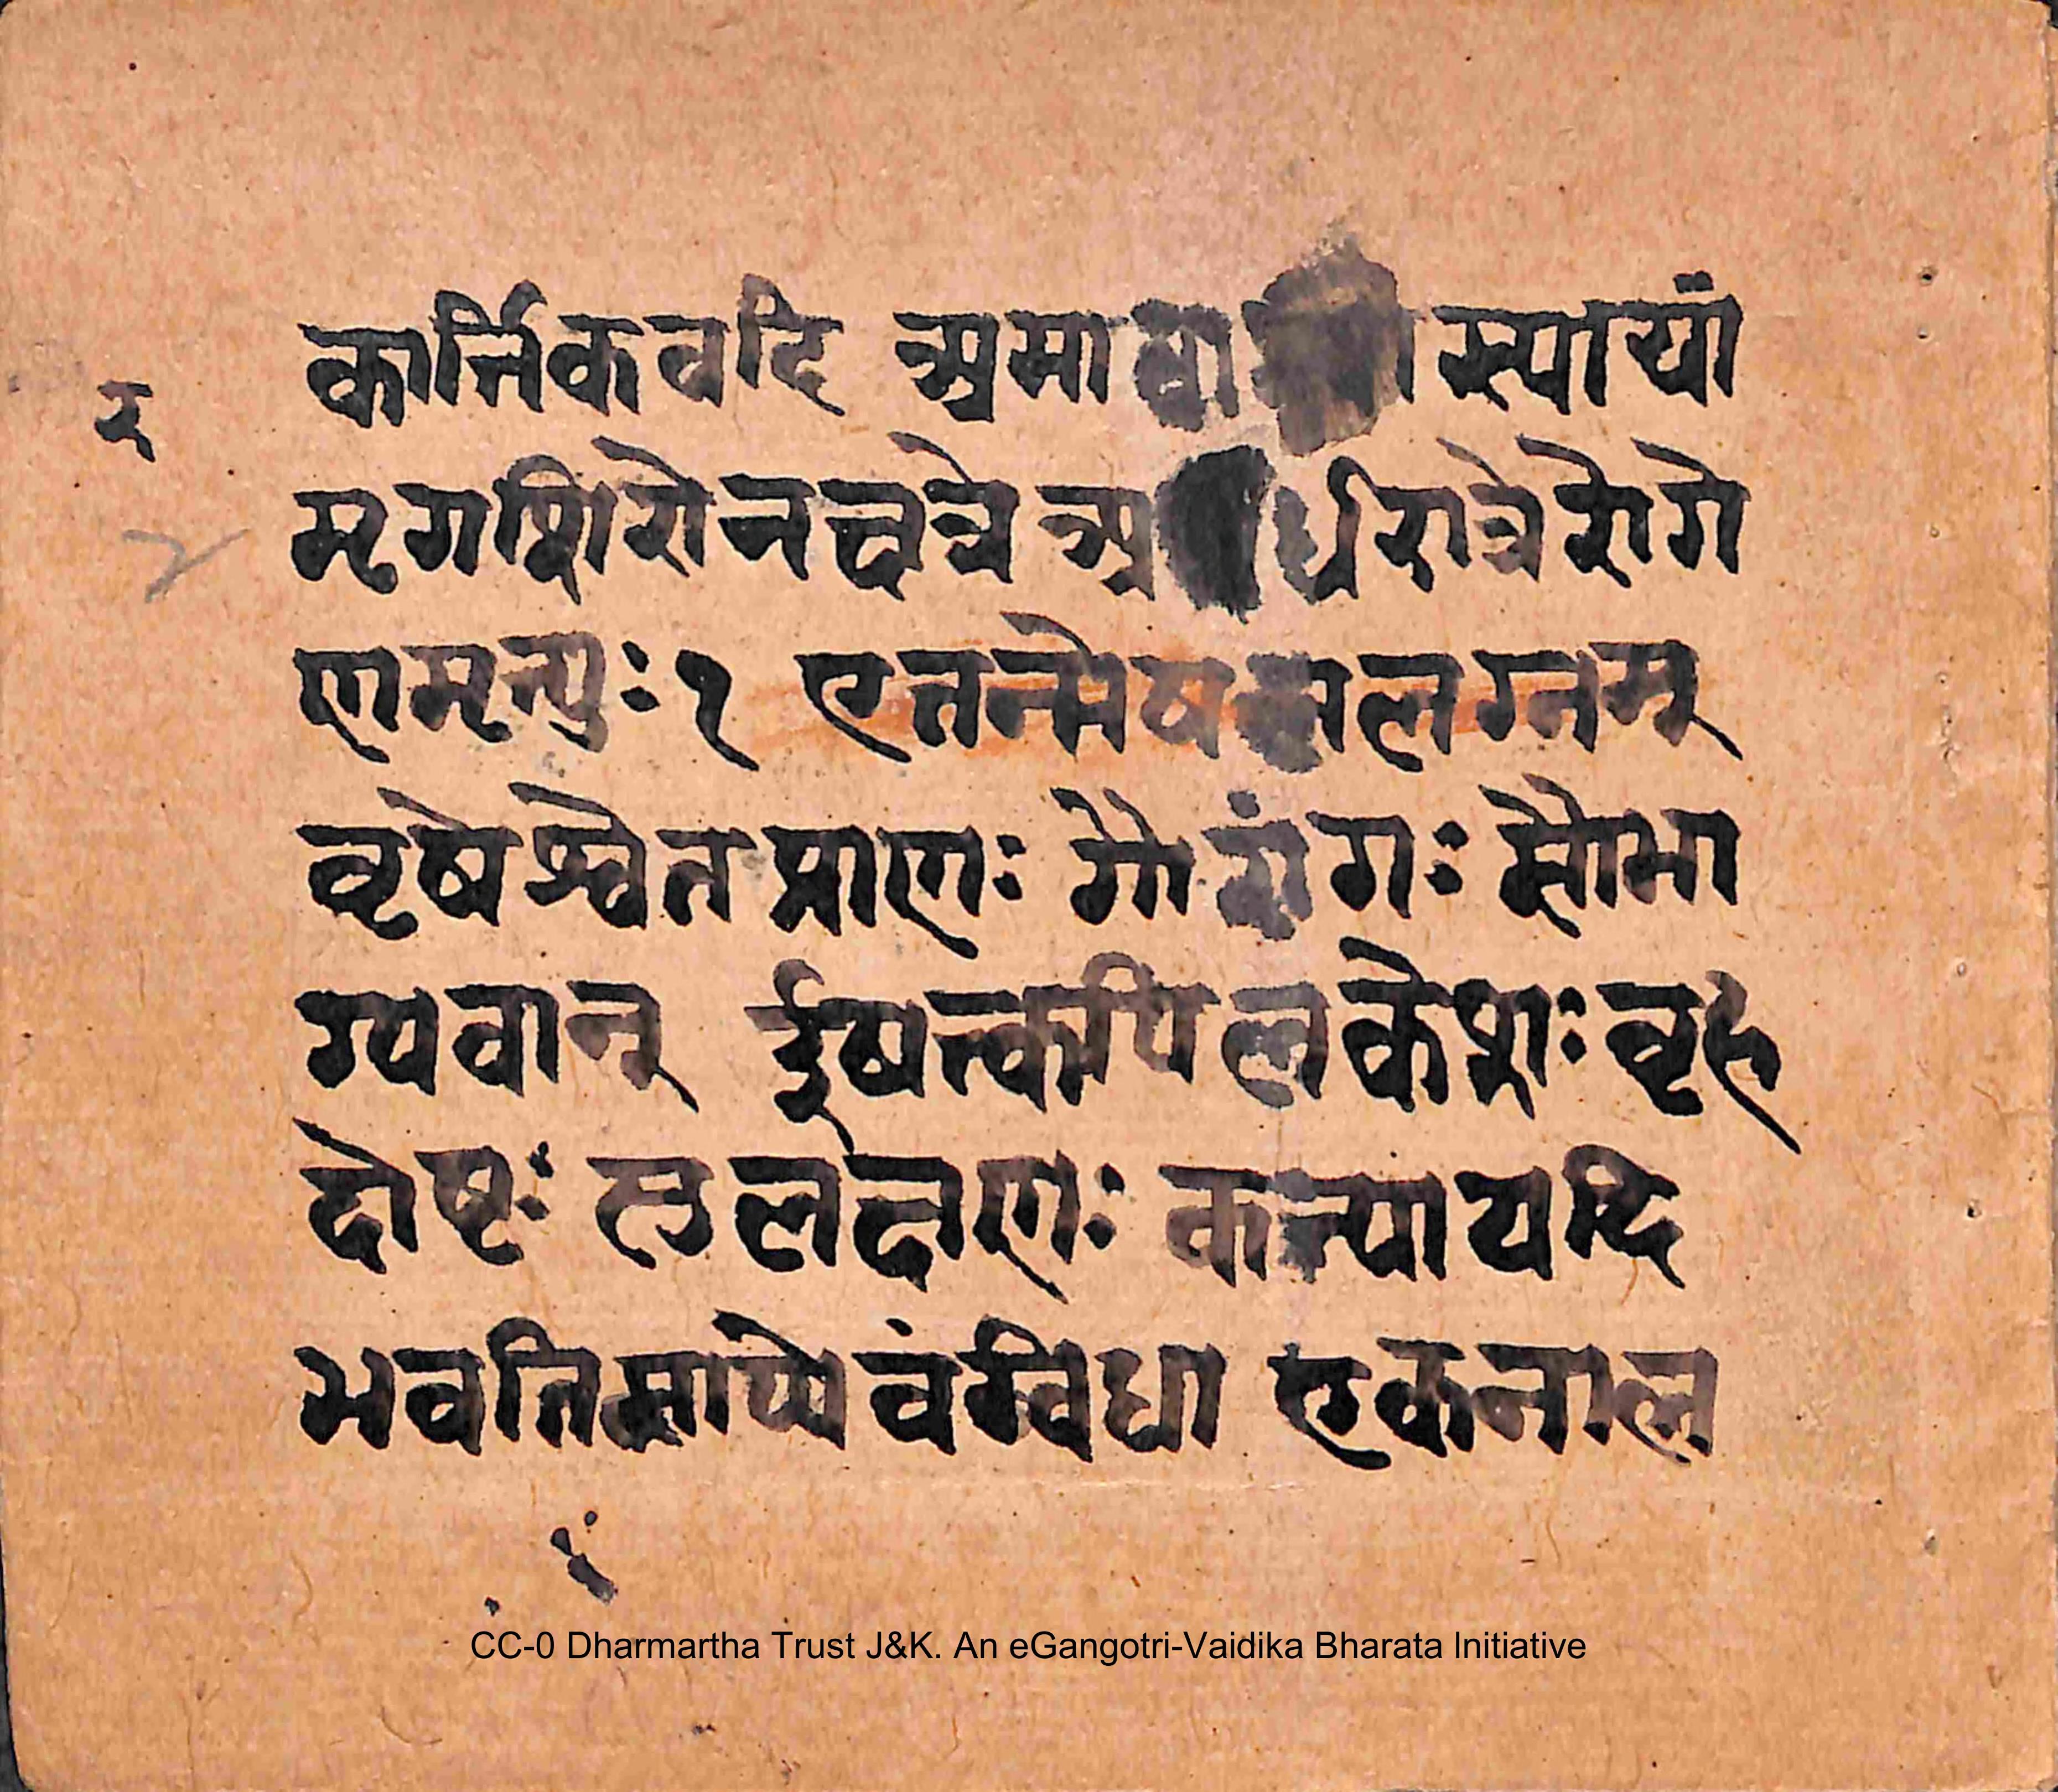 कार्त्तिकवदि अमावास्यायां
२
मृगशिरोनक्षत्रे अर्धरात्रे रोगे
णमृत्युः१ एतन्मेषस्यलग्नम्
वृषेश्वेतप्राणः गौरांगः सौभा
ग्यवान् ईषत्कपिलकेशः वृह
दोष्टः सुलक्षणः कन्यायदि
भवतिसाप्येवंविधा एकनाल
CC-0 Dharmartha Trust J&K. An eGangotri-Vaidika Bharata Initiative